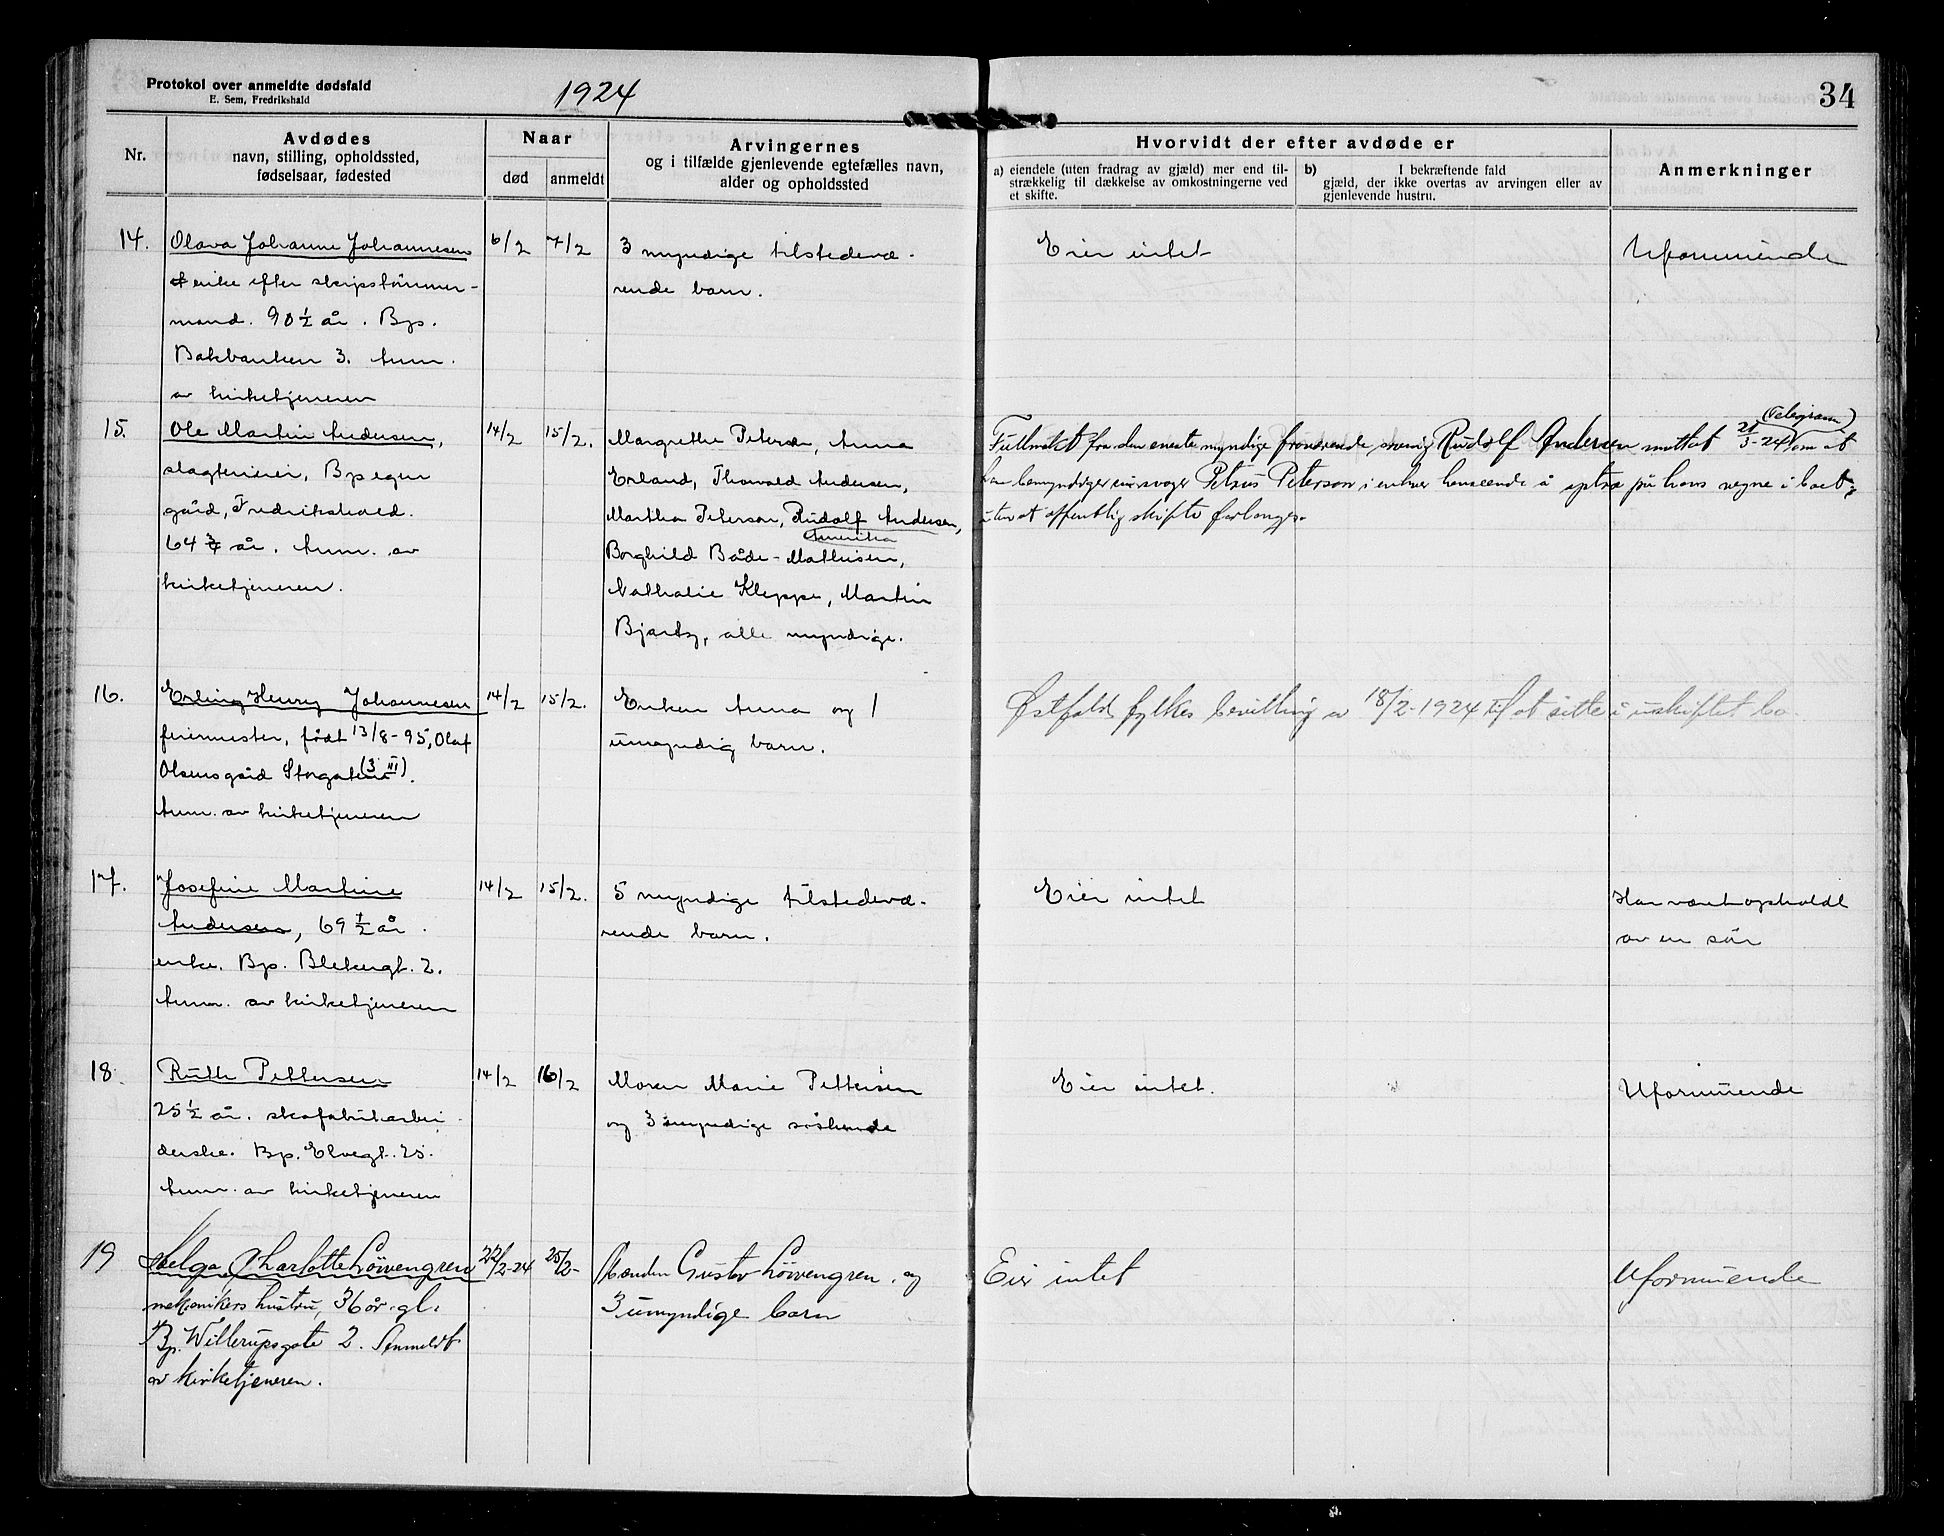 Protokol over anmeldte dødsfald
E. Sem, Fredrikshald
1924
34
Nr.
Avdødes
navn, stilling, opholdssted,
fødselsaar, fødested
Naar
død
anmeldt
Arvingernes
og i tilfælde gjenlevende egtefælles navn,
alder og opholdssted
Hvorvidt der efter avdøde er
a) eiendele (uten fradrag av gjæld) mer end til-
strækkelig til dækkelse av omkostningerne ved
et skifte.
b) I bekræftende fald
gjæld, der ikke overtas av arvingen eller av
gjenlevende hustru.
Anmerkninger
14. Olava Johanne Johannesen 6/2 7/2 3 myndige tilstedevæ- Eier intet Uformuende
enke efter skipstømmer- rende barn.
mand. 90 1/2 år. Bp.
Bakbanken 3. Anm.
av kirketjeneren
15. Ole Martin Andersen, 14/2 15/2.
slagterieier, Bp egen
gård, Fredrikshald.
64 3/4 år. Anm. av
kirketjeneren.
Margrethe Petersen, Anna
Erland, Thorvald Andersen,
Martha Peterson, Rudolf Andersen,
Amerika
Borghild Både-Mathisen,
Nathalie Kleppe, Martin
Bjarty, alle myndige.
(Telegram)
Fullmakt fra den eneste myndige fraværende Rudolf Andersen mottat 21/3-24 om at
han bemyndiger svoger Petrus Peterson i enhver henseende å optræ på hans vegne i boet,
uten at offentlig skifte forlanges.
16. Erling Henry Johannesen 14/2 15/2. Enken Anna og 1
feiermester, født 13/8-95, Olaf umyndig barn.
Olsensgård Storgaten (3 III).
Anm. av kirketjeneren
Østfold fylkes bevilling av 18/2-1924 til at sitte i uskiftet bo
17. Josefine Martine 14/2 15/2. 5 myndige tilstedevæ- Eier intet Har været opholdt
Andersen, 69 1/2 år. rende barn. av en søn
enke. Bp. Blekergt. 2.
Anm. av kirketjeneren
18. Ruth Pettersen 14/2 16/2 Moren Marie Pettersen Eier intet. Uformuende
25 1/2 år. skofabrikarbei- og 3 myndige søskende
derske. Bp. Elvegt. 25.
Anm. av kirketjeneren
19 Helga Charlotte Löwengren 22/2-24 25/2- Manden Gustav Löwengren. og Eier intet Uformuende
mekanikers hustru, 36 år. gl. 3 umyndige barn
Bp. Willerupsgate 2. Anmeldt
av kirketjeneren.